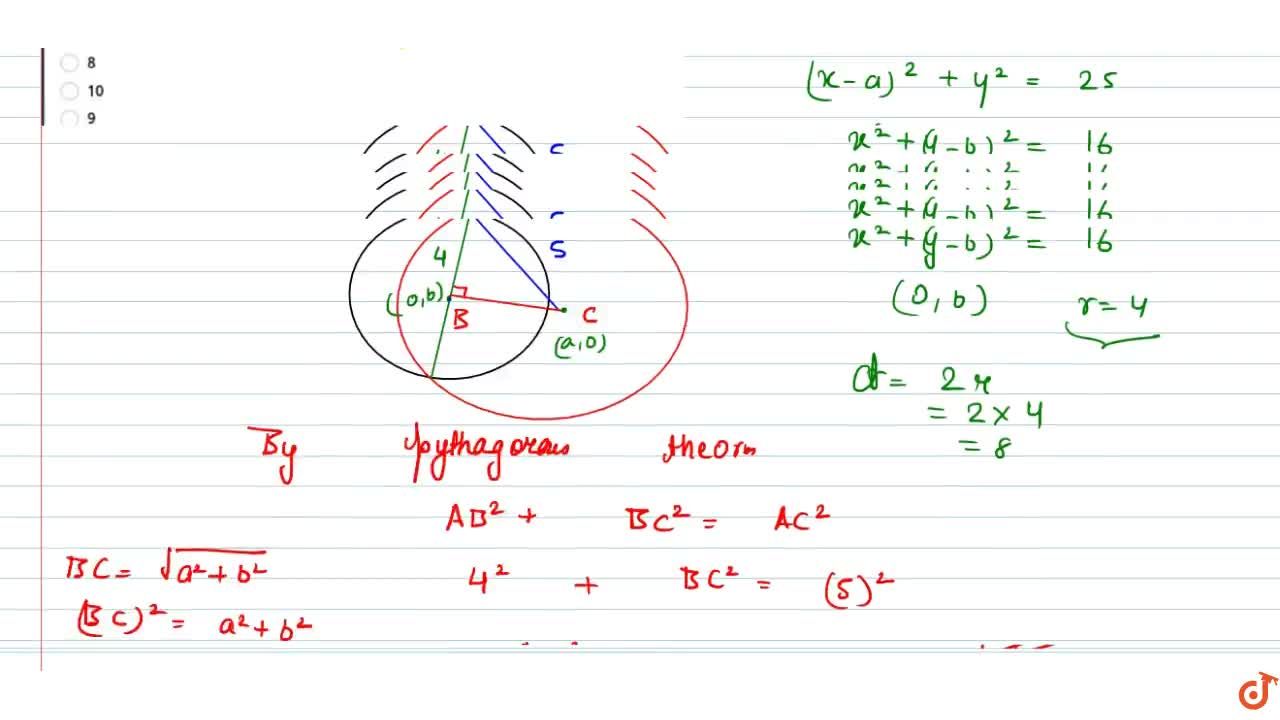 8
10
9
(x-a)² + y² = 25
x² + (y-b)² = 16
x² + (y-b)² = 16
x² + (y-b)² = 16
(0, b)
r = 4
d = 2r
= 2 × 4
= 8
4
5
(0, b)
B
C
(a, 0)
By pythagoras theorm
AB² + BC² = AC²
BC = √a² + b²
4² + BC² = (5)²
(BC)² = a² + b²